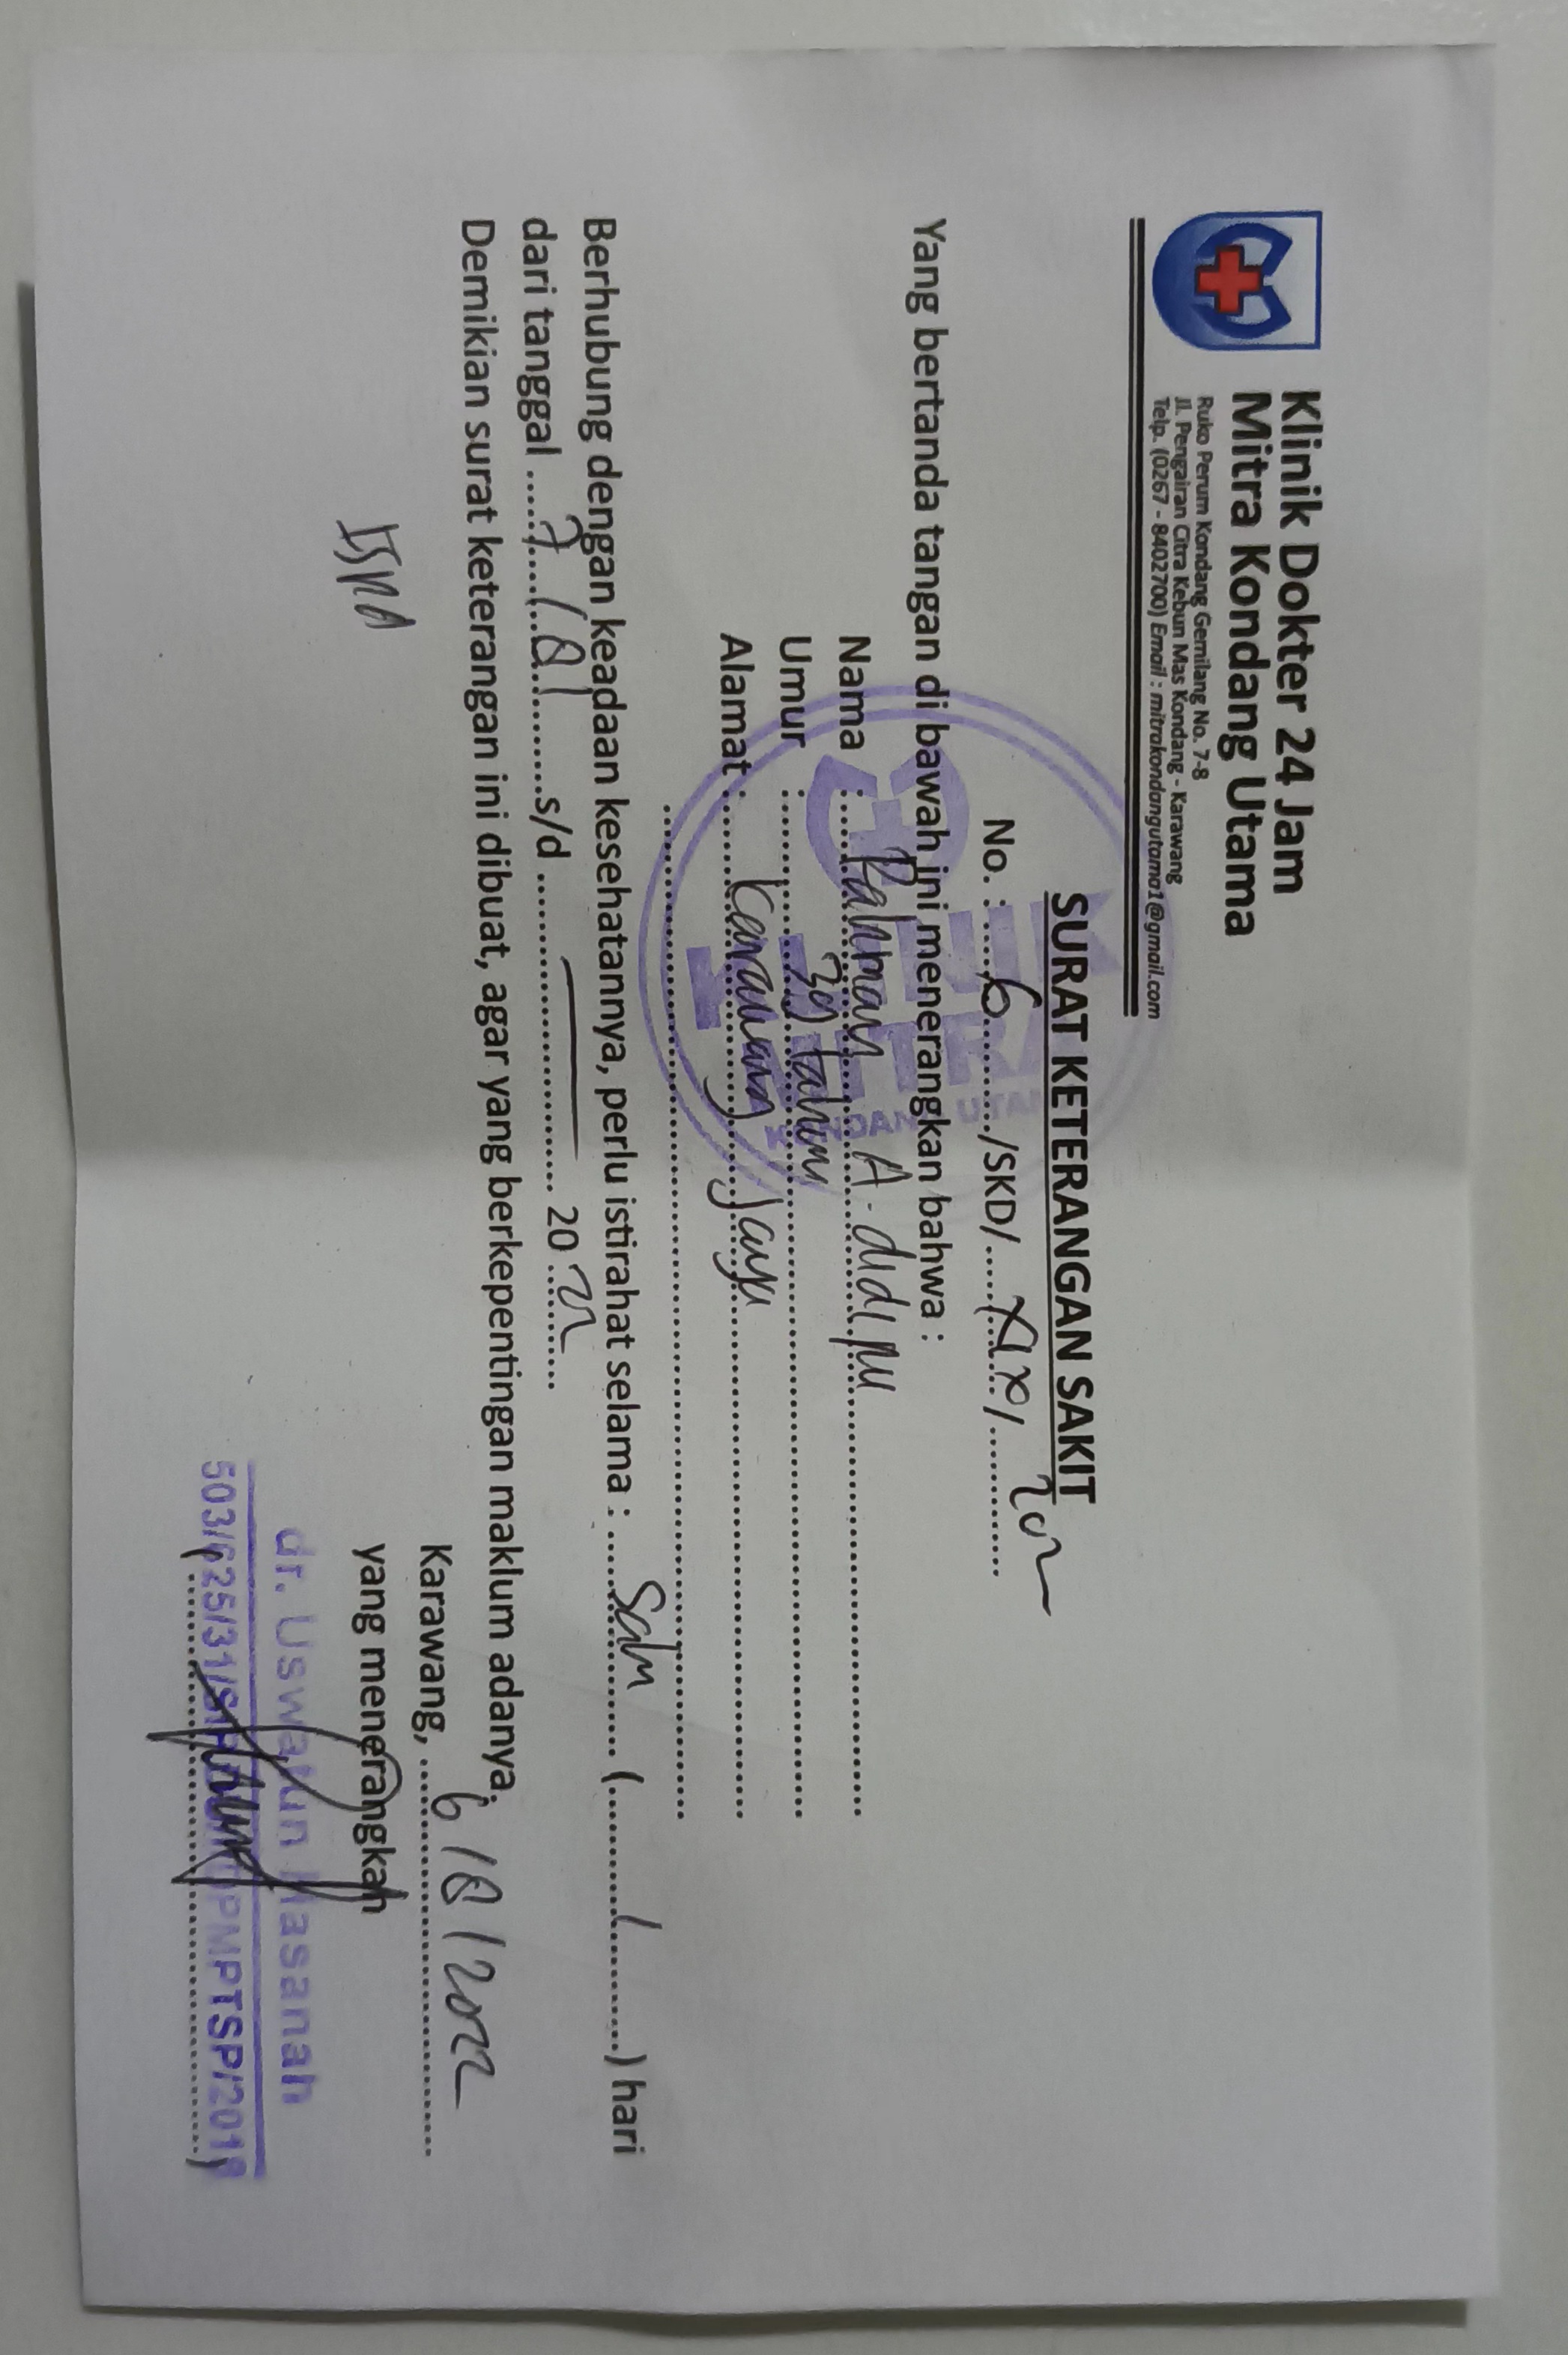 Klinik Dokter 24 Jam
Mitra Kondang Utama
Ruko Perum Kondang Gemilang No. 7-8
Jl. Pengairan Citra Kebun Mas Kondang - Karawang
Telp. (0267 - 8402700) Email : mitrakondangutama1@gmail.com
SURAT KETERANGAN SAKIT
No. : 6 /SKD/ /
Yang bertanda tangan di bawah ini menerangkan bahwa :
Nama : Rahman A.
Umur : tahun
Alamat : Karawang Jaya
Berhubung dengan keadaan kesehatannya, perlu istirahat selama : Satu ( 1 ) hari
dari tanggal 7/8/ s/d — 2022
Demikian surat keterangan ini dibuat, agar yang berkepentingan maklum adanya.
Karawang, 6/8/2022
yang menerangkan
ISPA
dr. Uswatun Hasanah